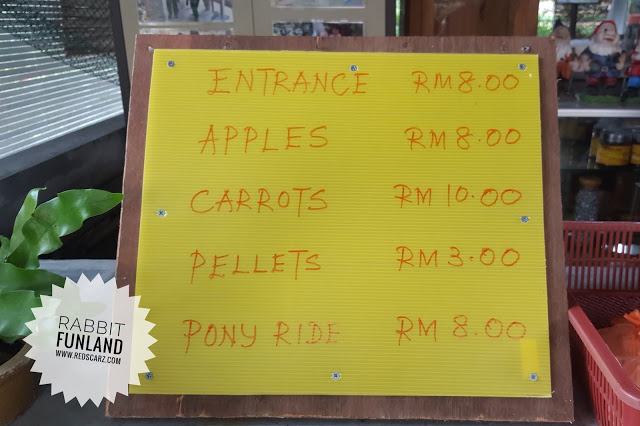 ENTRANCE RM8.00
APPLES RM 8.00
CARROTS RM 10.00
PELLETS RM 3.00
PONY RIDE RM 8.00
RABBIT
FUNLAND
WWW.REDSCARZ.COM